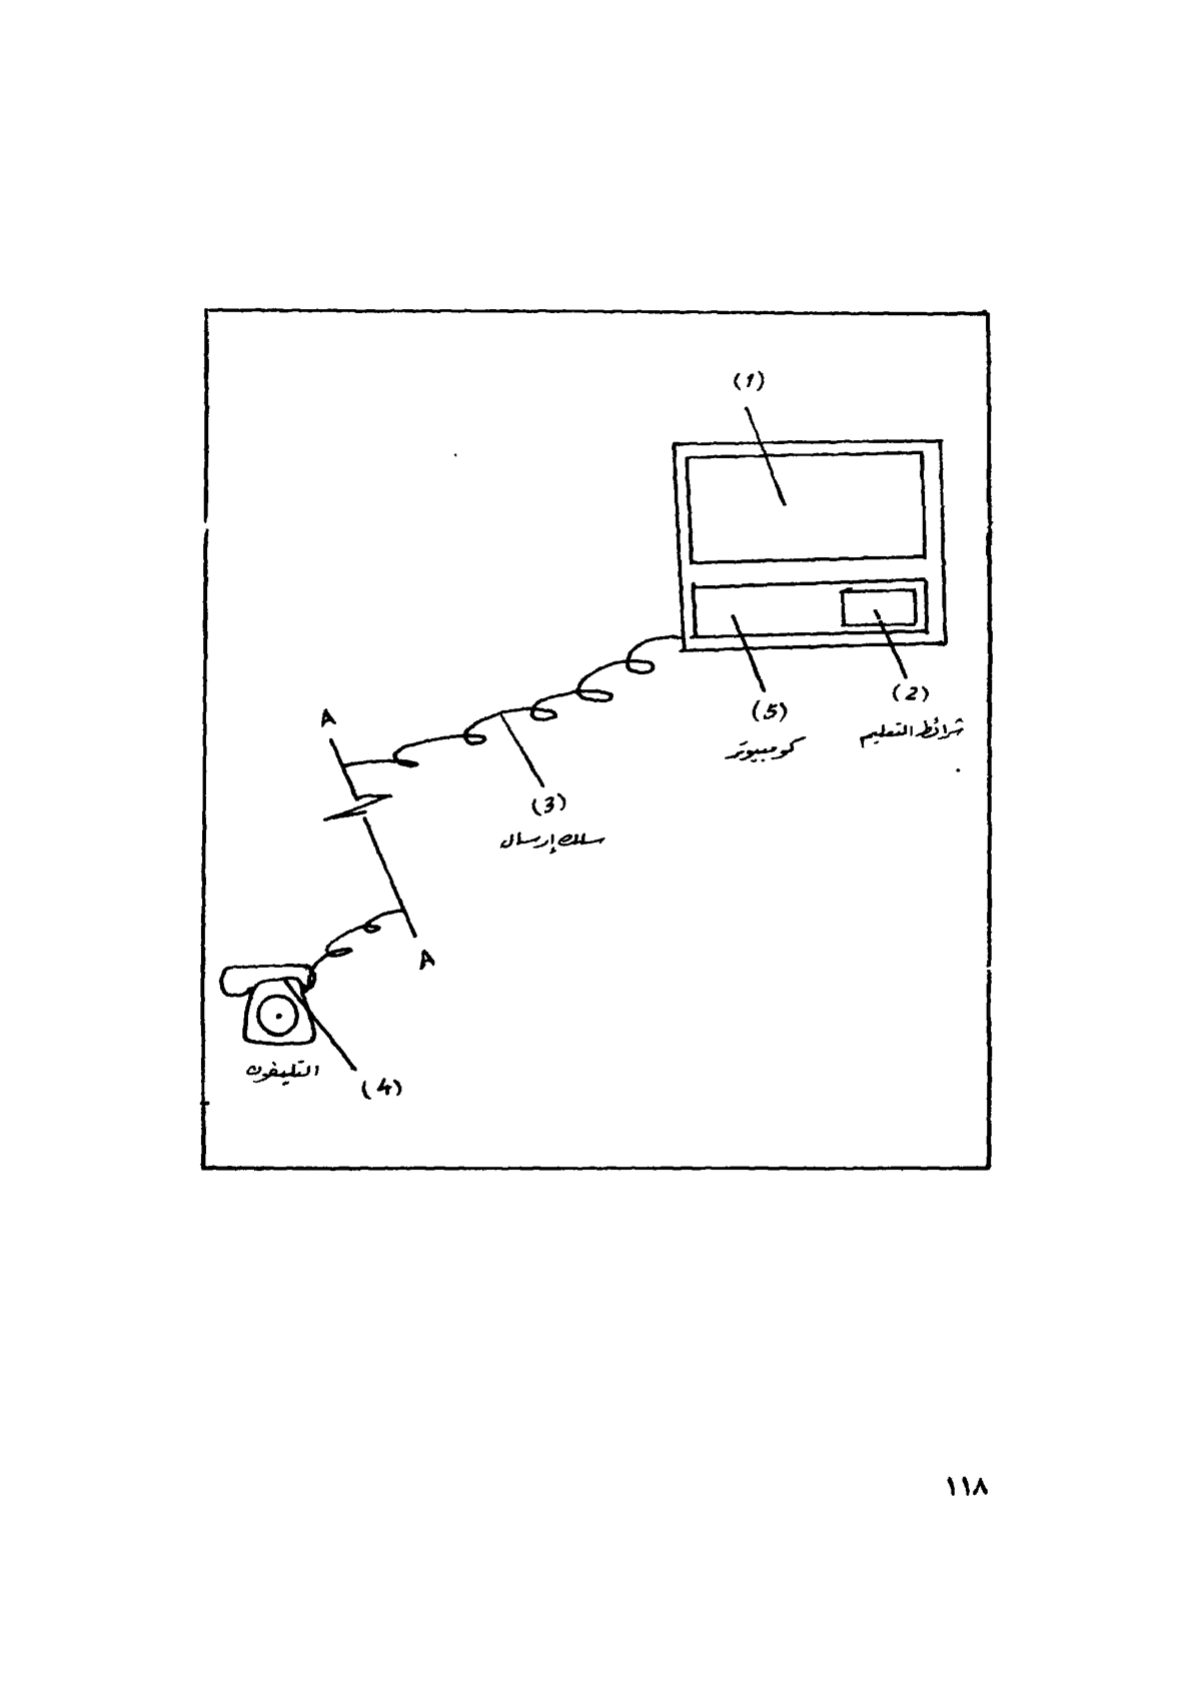 (1)
(2)
شرائط التعليم
(5)
كومبيوتر
A
(3)
سلك إرسال
A
التليفون
(4)
١١٨